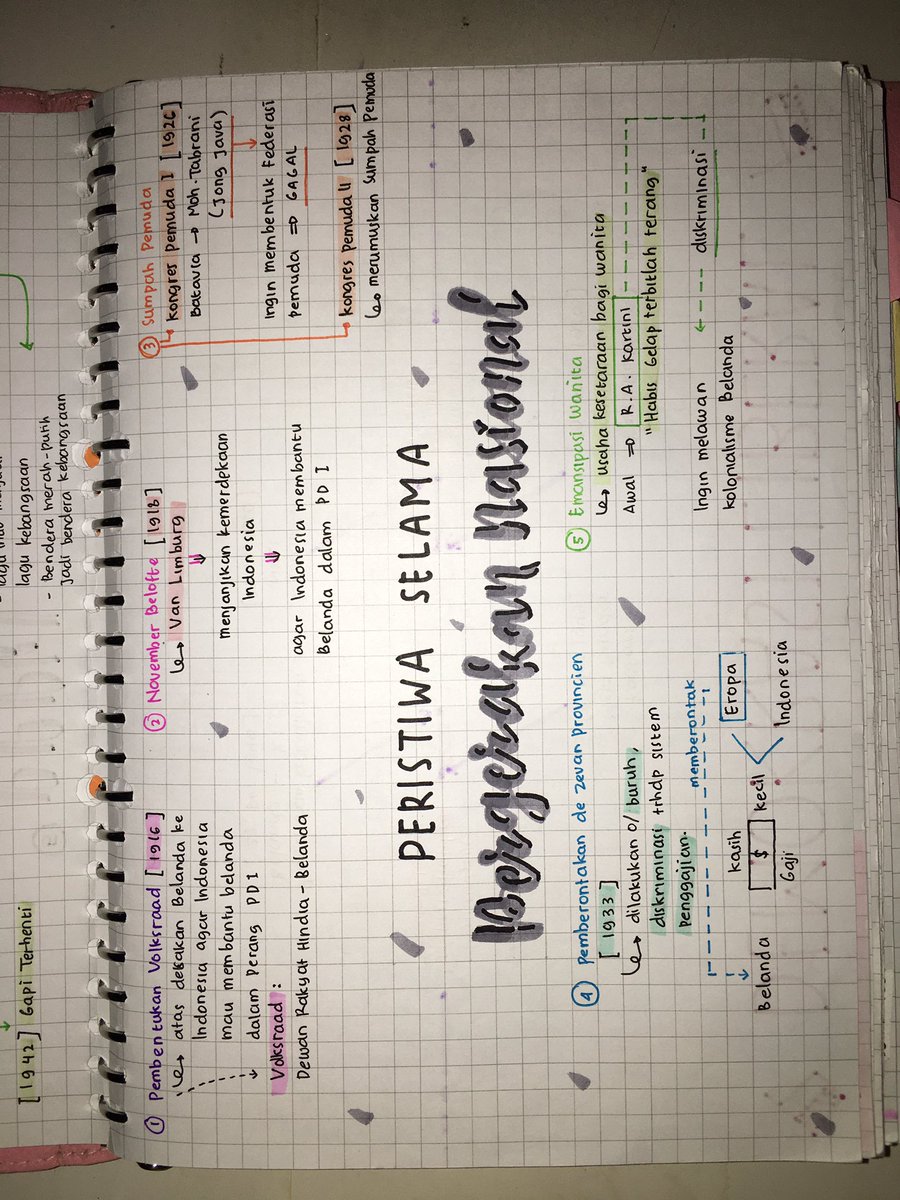 [1942] Gapi Terhenti
lagu kebangsaan
- Bendera merah-putih
jadi bendera kebangsaan
① Pembentukan Volksraad [1916]
↳ atas desakan Belanda ke
Indonesia agar Indonesia
mau membantu belanda
dalam Perang PD I
Volksraad :
Dewan Rakyat Hindia - Belanda
② November Belofte [1918]
↳ Van Limburg
⇓
menjanjikan kemerdekaan
Indonesia
⇓
agar Indonesia membantu
Belanda dalam PD I
③ Sumpah Pemuda
↳ kongres pemuda I [1926]
Batavia → Moh. Tabrani
(Jong Java)
Ingin membentuk Federasi
pemuda ⇒ GAGAL
kongres pemuda II [1928]
↳ merumuskan sumpah Pemuda
PERISTIWA SELAMA
Pergerakan Nasional
④ Pemberontakan de zevan provincien
[1933]
↳ dilakukan o/ buruh,
diskriminasi trhdp sistem
penggajian.
memberontak
Belanda kasih $ kecil Eropa
Gaji Indonesia
⑤ Emansipasi Wanita
↳ usaha kesetaraan bagi wanita
Awal ⇒ R.A. Kartini
"Habis Gelap terbitlah terang"
Ingin melawan ← diskriminasi
kolonialisme Belanda